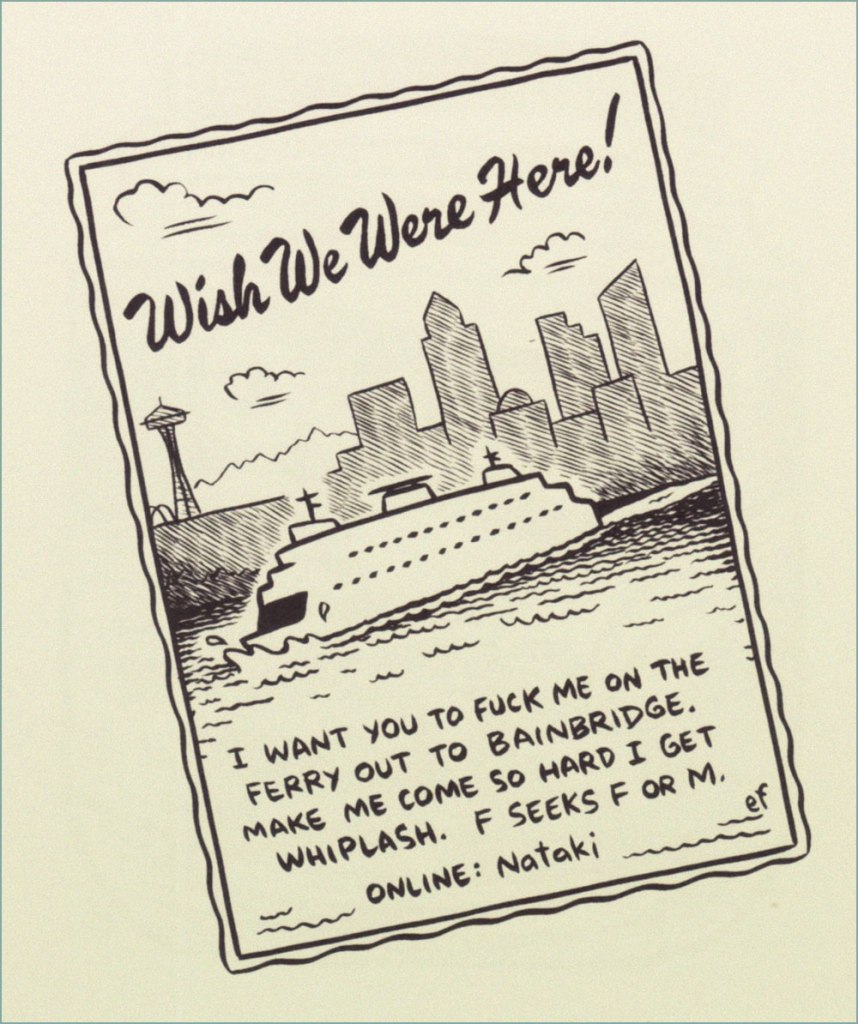 Wish We Were Here!
I WANT YOU TO FUCK ME ON THE
FERRY OUT TO BAINBRIDGE.
MAKE ME COME SO HARD I GET
WHIPLASH. F SEEKS F OR M.
ONLINE: Nataki
ef